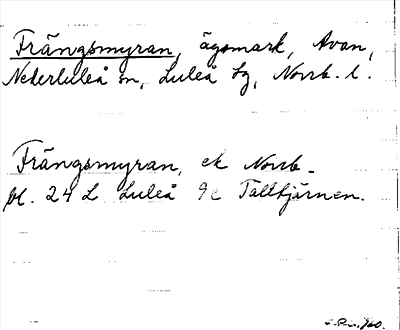 Frängsmyran, ägomark, Avan,
Nederluleå sn, Luleå tg, Norrb. l.
Frängsmyran, ek Norrb.
bl. 24 L Luleå 9c Talltjärnen.